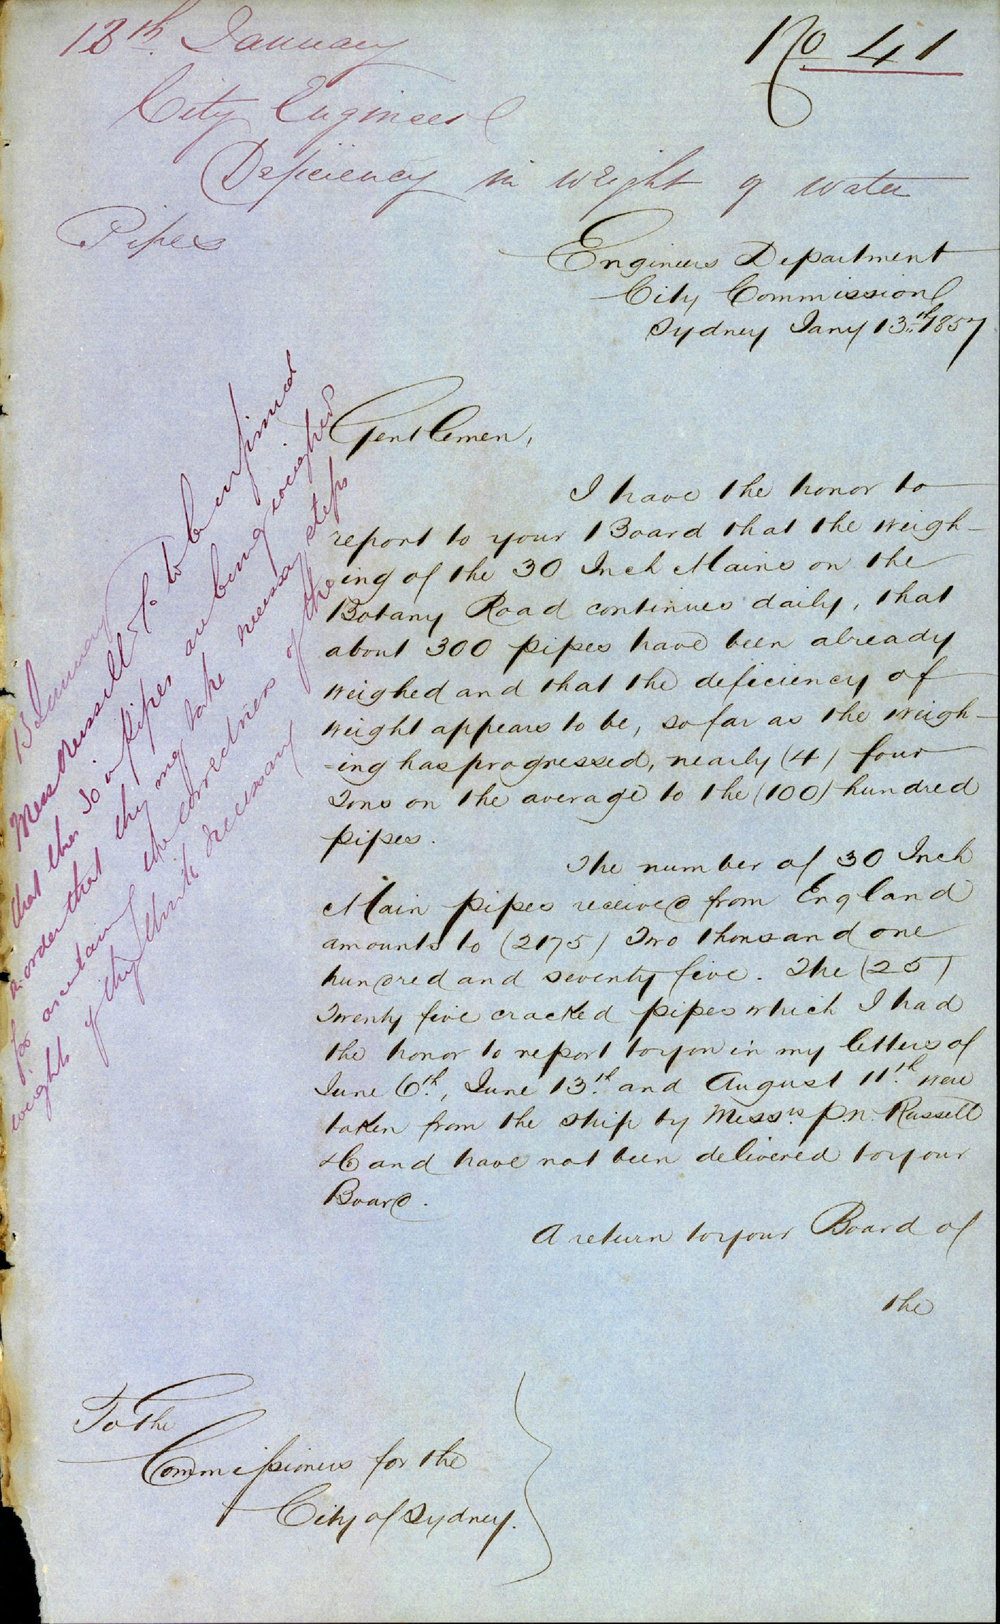 No 41
13th January
City Engineer
Deficiency in weight of water
Pipes
Engineers Department
City Commission
Sydney Jany 13th 1857
Gentlemen,
I have the honor to
report to your Board that the weigh-
ing of the 30 Inch Mains on the
Botany Road continues daily, that
about 300 pipes have been already
weighed and that the deficiency of
weight appears to be, so far as the weigh-
-ing has progressed, nearly (4) four
Tons on the average to the (100) hundred
pipes.
The number of 30 Inch
Main pipes received from England
amounts to (2175) Two thousand one
hundred and seventy five. The (25)
Twenty five cracked pipes which I had
the honor to report to you in my letters of
June 6th, June 13th and August 11th were
taken from the ship by Messrs. P.N. Russell
& Co and have not been delivered to your
Board.
A return to your Board of
the
To the
Commissioners for the
City of Sydney.
13 January
Mess Russell & Co to be informed
that their 30 in pipes are being weighed
in order that they may take necessary steps
for ascertaining the correctness of the
weights if they think necessary